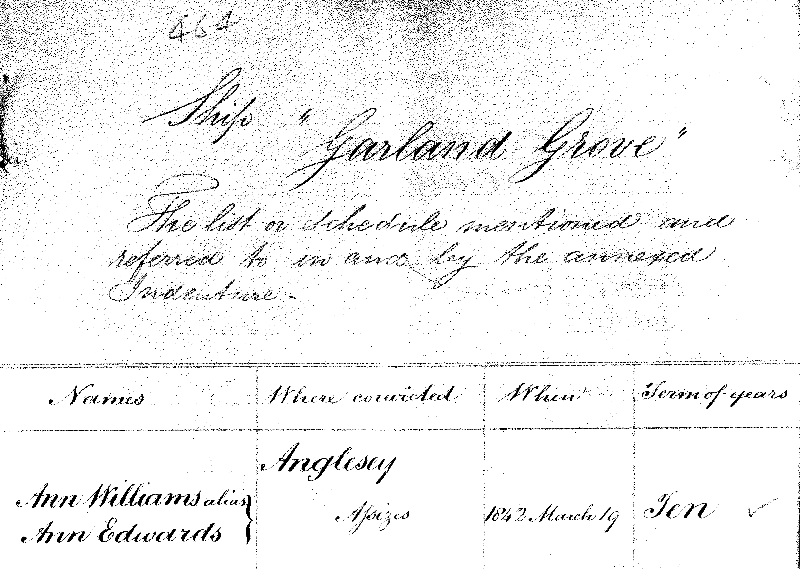 464
Ship "
Garland Grove"
The list or Schedule mentioned and
referred to in and by the annexed
Indenture -
Names Where convicted When Term of years
Anglesey
Ann Williams alias
Assizes 1842 March 19 Ten ✓
Ann Edwards